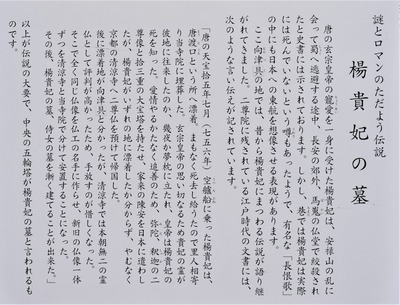 謎とロマンのただよう伝説
楊貴妃の墓
唐の玄宗皇帝の寵愛を一身に受けた楊貴妃は、安禄山の乱に
会って蜀へ逃避する途中、長安の郊外、馬嵬の仏堂で絞殺され
たと史書には示されております。しかし、巷では楊貴妃は実際
には死んでいないという噂もあったようで、有名な「長恨歌」
の中にも日本への東航を想像させる表現があります。
ここ向津具の地では、昔から楊貴妃にまつわる伝説が語り継
がれてきました。二尊院に残されている江戸時代の文書には、
次のような言い伝えが記されています。
「唐の天宝拾五年七月（七五六年）、空艫船に乗った楊貴妃は、
唐渡口という所へ漂着、まもなく死去し給うたので里人相寄
り当寺院に埋葬した。玄宗皇帝の思い切なるため貴妃の霊が
彼地に往来したのか、幾度か夢枕に立たれ、皇帝は楊貴妃の
死を知った。愛情やるかたなく、追善のため、弥陀、釈迦二
尊像と拾三重の大宝塔を持たせ、家来の陳安を日本に遣わし
たが、楊貴妃がいずれの地に漂着したか分からず、やむなく
京都の清涼寺へ二尊仏を預けて帰国した。
後に漂着地が向津具と分ったが、清涼寺では本朝無二の霊
仏として評判が高かったため、手放すのが惜しくなった。
そこで全く同じ仏像を仏工の名手に作らせ、新旧の仏像一体
ずつを清涼寺と当寺院で分けて安置することになった。
その後、楊貴妃の墓、侍女の墓を漸く建てることが出来た。」
以上が伝説の大要で、中央の五輪塔が楊貴妃の墓と言われるも
のです。